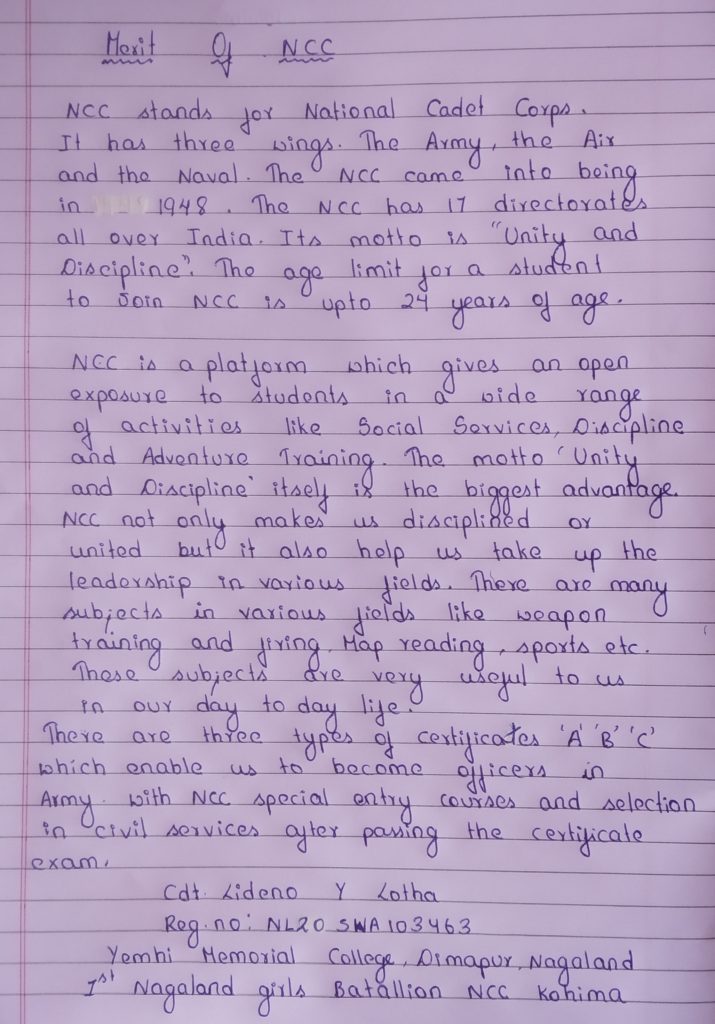 Merit Of NCC
NCC stands for National Cadet Corps.
It has three wings. The Army, the Air
and the Naval. The NCC came into being
in 1948. The NCC has 17 directorates
all over India. Its motto is "Unity and
Discipline". The age limit for a student
to Join NCC is upto 24 years of age.
NCC is a platform which gives an open
exposure to students in a wide range
of activities like Social Services, Discipline
and Adventure Training. The motto 'Unity
and Discipline' itself is the biggest advantage.
NCC not only makes us disciplined or
united but it also help us take up the
leadership in various fields. There are many
subjects in various fields like weapon
training and firing, Map reading, sports etc.
These subjects are very useful to us
in our day to day life.
There are three types of certificates 'A' 'B' 'C'
which enable us to become officers in
Army. with NCC special entry courses and selection
in civil services after passing the certificate
exam.
Cdt. Lideno Y Lotha
Reg. no: NL20 SWA 103463
Yemhi Memorial College, Dimapur, Nagaland
1st Nagaland girls Batallion NCC Kohima